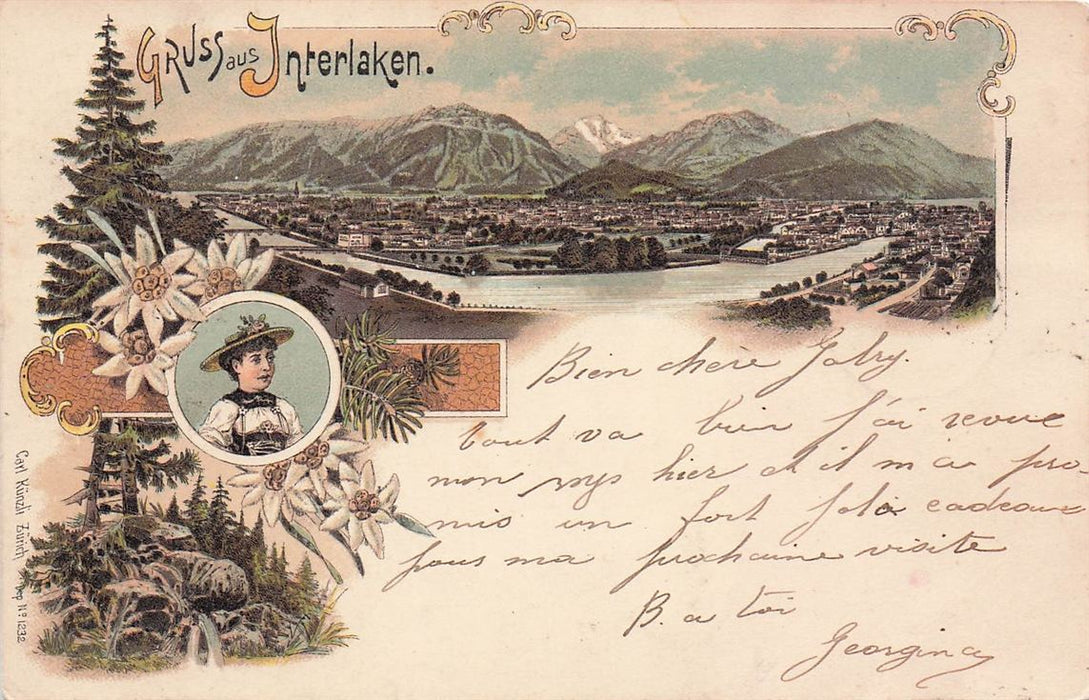 Gruss aus Interlaken.
Bien chère Gabry.
tout va bien j'ai revue
mon mys hier et il m'a pro
mis un fort joli cadeau
pour ma prochaine visite
B. a toi
Georgina
Carl Künzli Zürich Dep Nº 1232